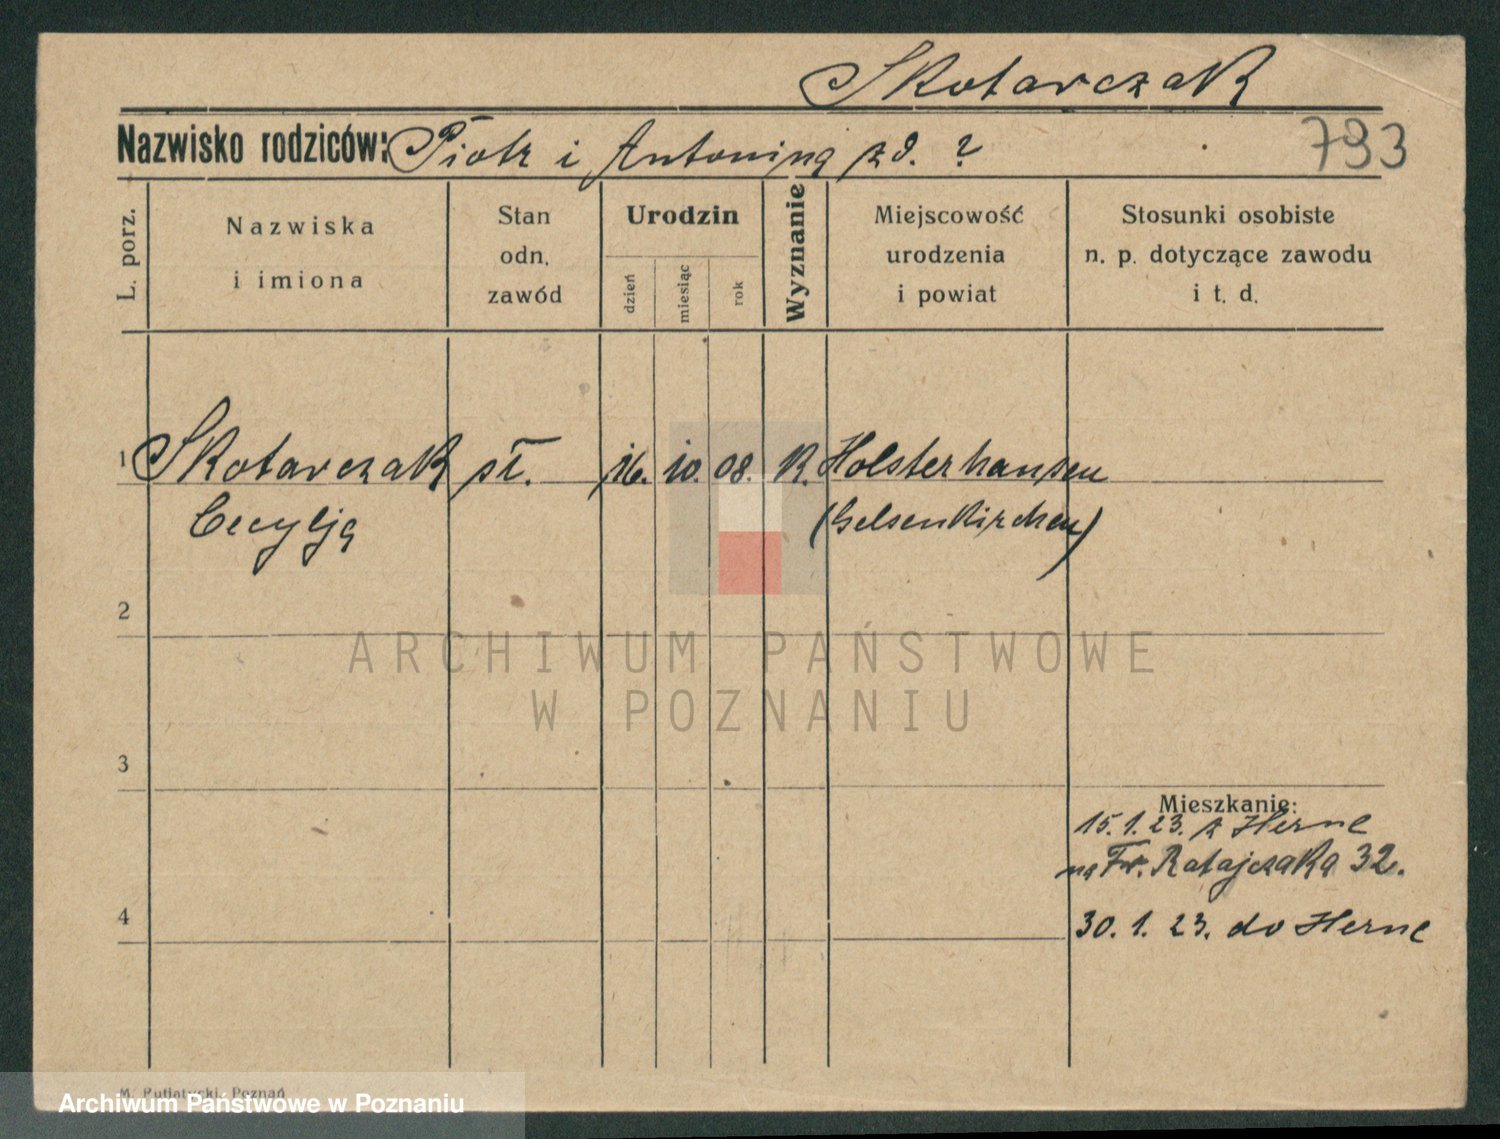 Skotarczak
Nazwisko rodziców: Piotr i Antonina zd. ?
793
L. porz.
Nazwiska
i imiona
Stan
odn.
zawód
Urodzin
dzień
miesiąc
rok
Wyznanie
Miejscowość
urodzenia
i powiat
Stosunki osobiste
n. p. dotyczące zawodu
i t. d.
1 Skotarczak sł. 16. 10. 08. K. Holsterhausen
Cecylja (Gelsenkirchen)
2
ARCHIWUM PAŃSTWOWE
W POZNANIU
3
Mieszkanie:
15. 1. 23. z Herne
na Fr. Ratajczaka 32.
4
30. 1. 23. do Herne
M. Putiatycki, Poznań
Archiwum Państwowe w Poznaniu